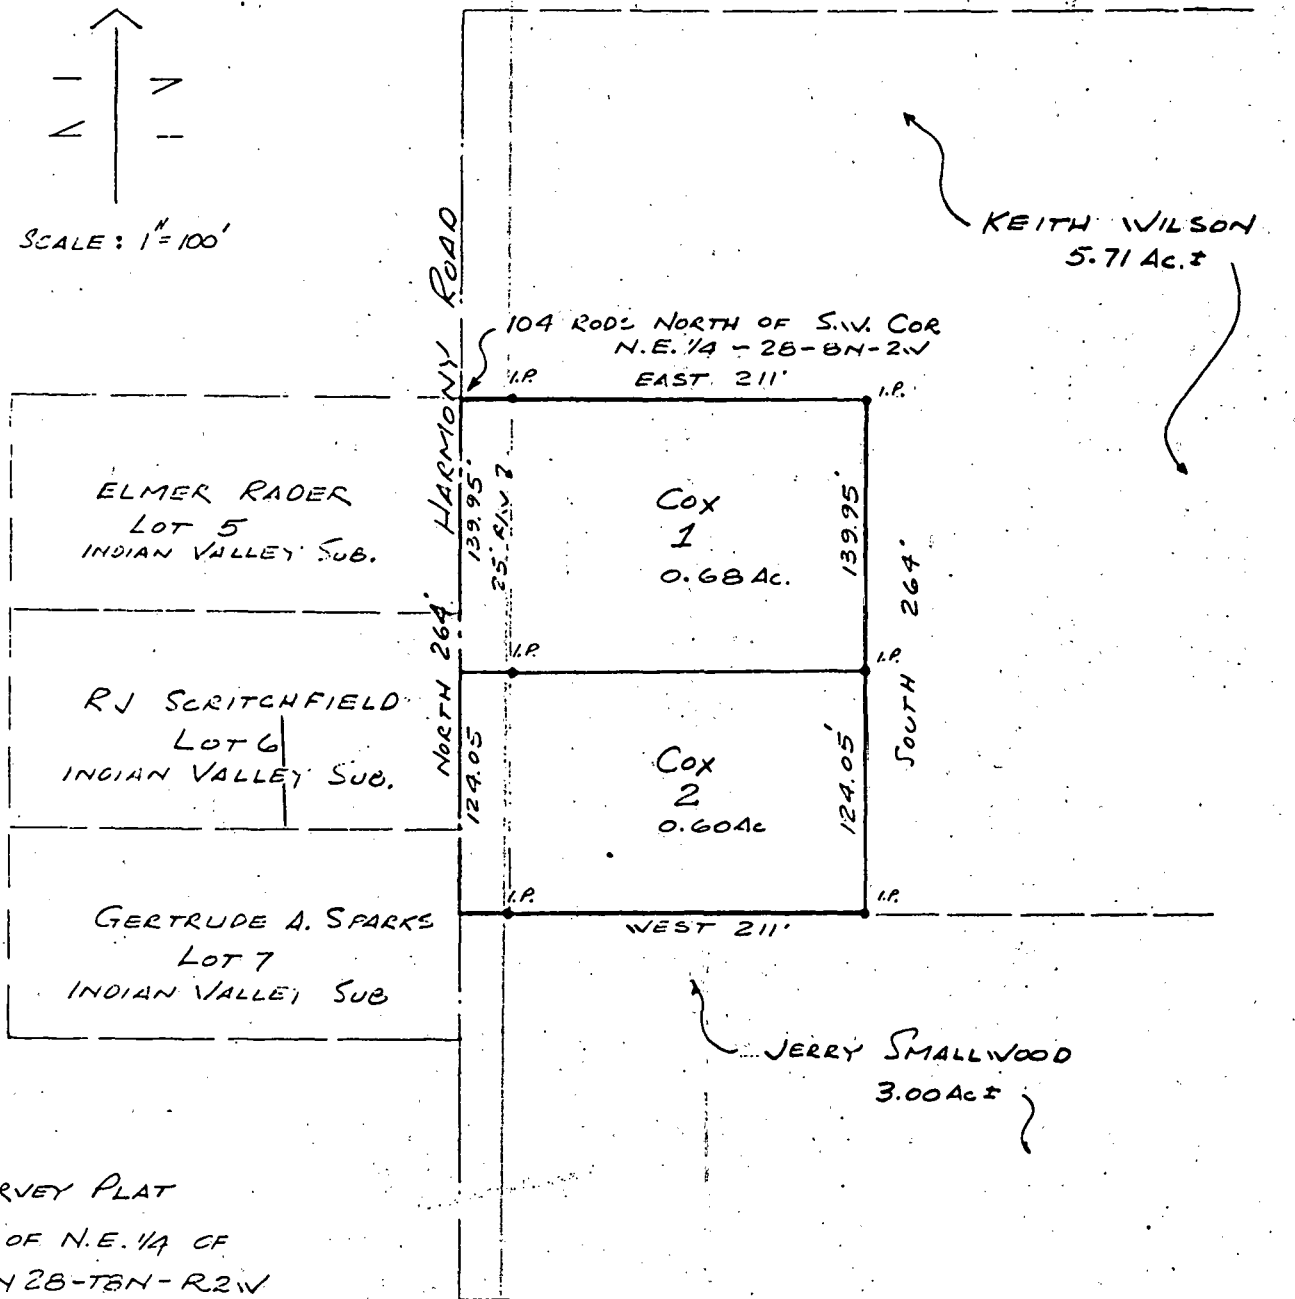 N
SCALE: 1"=100'
KEITH WILSON
5.71 Ac.±
HARMONY ROAD
104 RODS NORTH OF S.W. COR
N.E. 1/4 - 28-8N-2W
I.P.
EAST 211'
I.P.
ELMER RADER
LOT 5
INDIAN VALLEY SUB.
139.95'
25' R/W ?
COX
1
0.68 AC.
139.95'
SOUTH 264'
NORTH 264'
I.P.
I.P.
RJ SCRITCHFIELD
LOT 6
INDIAN VALLEY SUB.
124.05
COX
2
0.60 Ac
124.05'
I.P.
I.P.
WEST 211'
GERTRUDE A. SPARKS
LOT 7
INDIAN VALLEY SUB
JERRY SMALLWOOD
3.00 Ac ±
RVEY PLAT
OF N.E. 1/4 OF
28-T8N-R2W